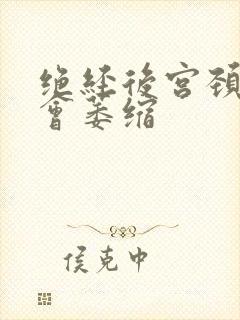 绝经後宫颈
会萎缩
侯克中